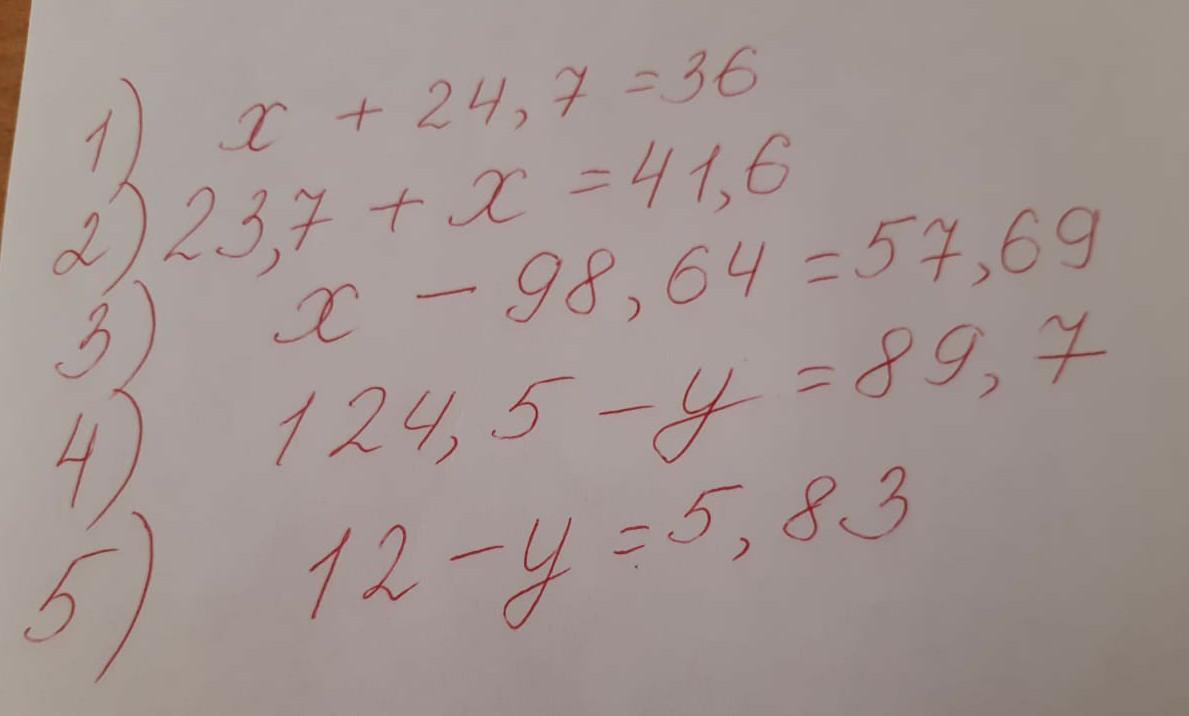 1) x + 24,7 = 36
2) 23,7 + x = 41,6
3) x - 98,64 = 57,69
4) 124,5 - y = 89,7
5) 12 - y = 5,83